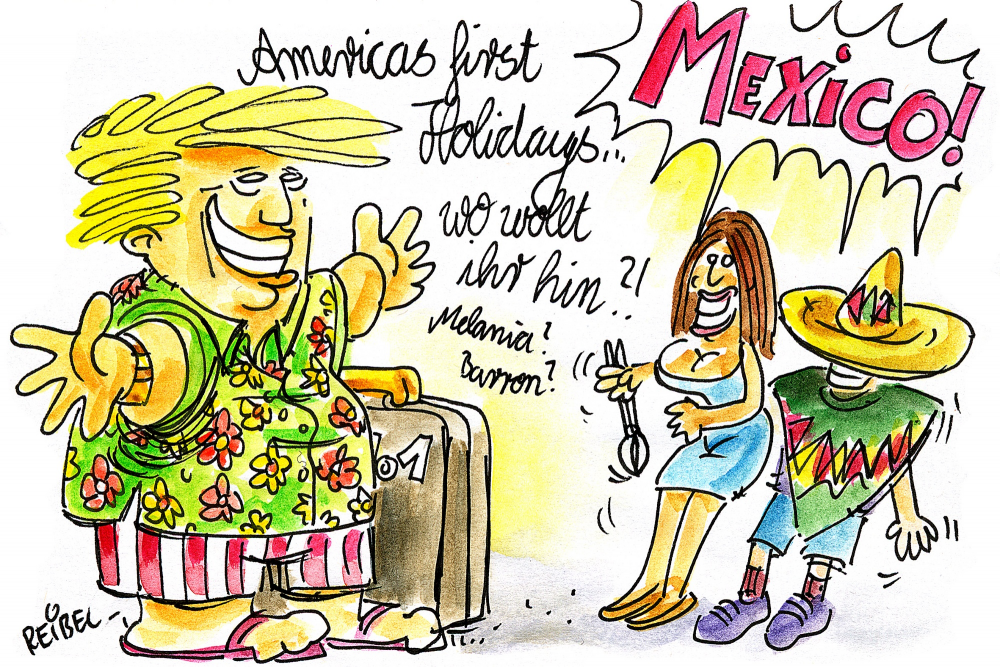 Americas first
Holidays...
wo wollt
ihr hin..?!
Melania?
Barron?
MEXICO!
01
REIBEL-